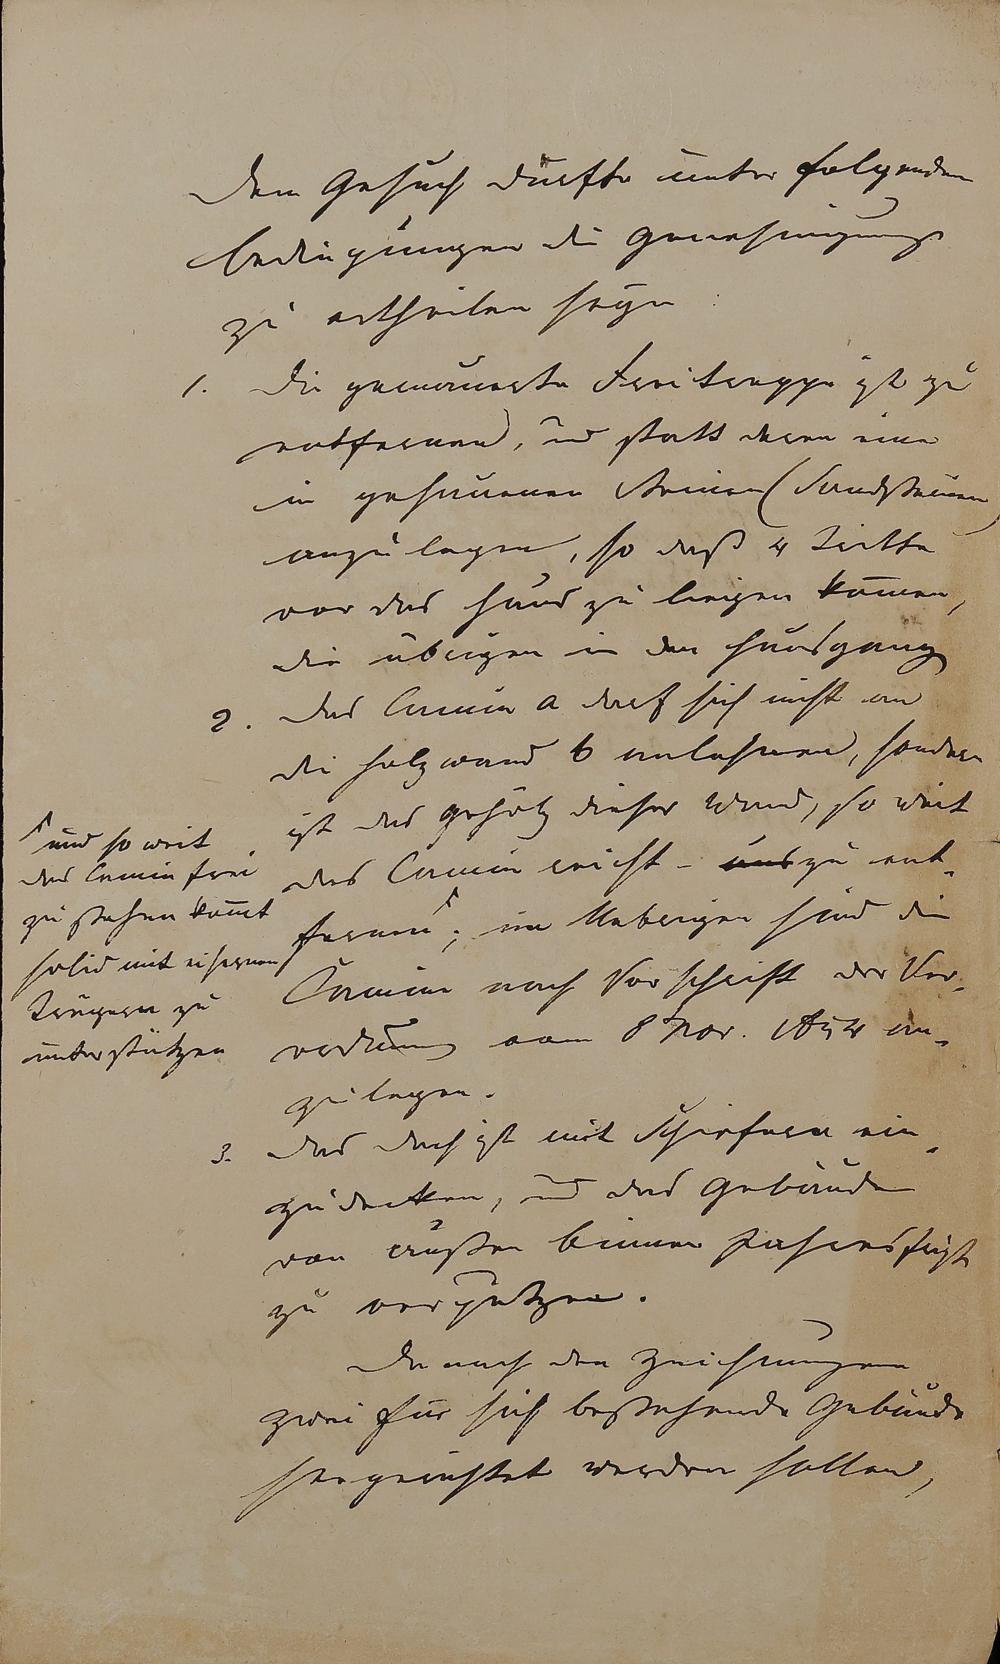 Dem Gesuch dürfte unter folgenden
Bedingungen die Genehmigung
zu ertheilen seyn:
1. Die gemauerte Freitreppe ist zu
entfernen, und statt deren eine
in gehauenen Steinen (Sandsteinen)
anzulegen, so daß 4 Tritte
vor das Haus zu liegen kom̄en,
die übrigen in den Hausgang
2. Das Camin a darf sich nicht an
die Holzwand b anlehnen, sondern
ist das Gehölz dieser Wand, so weit
das Camin reicht – zu ent-
fernen ⌈; im Uebrigen sind die
Camine nach Vorschrift der Ver-
ordnung vom 8 Nov. 1854 an-
zulegen.
⌈ und so weit
das Camin frei
zu stehen kom̄t
solid mit eisernen
Trägern zu
unterstützen
3. Das Dach ist mit Schiefern ein-
zudecken, und das Gebäude
von außen binnen Jahresfrist
zu verputzen.
Da nach den Zeichnungen
zwei für sich bestehende Gebäude
hergerichtet werden sollen,